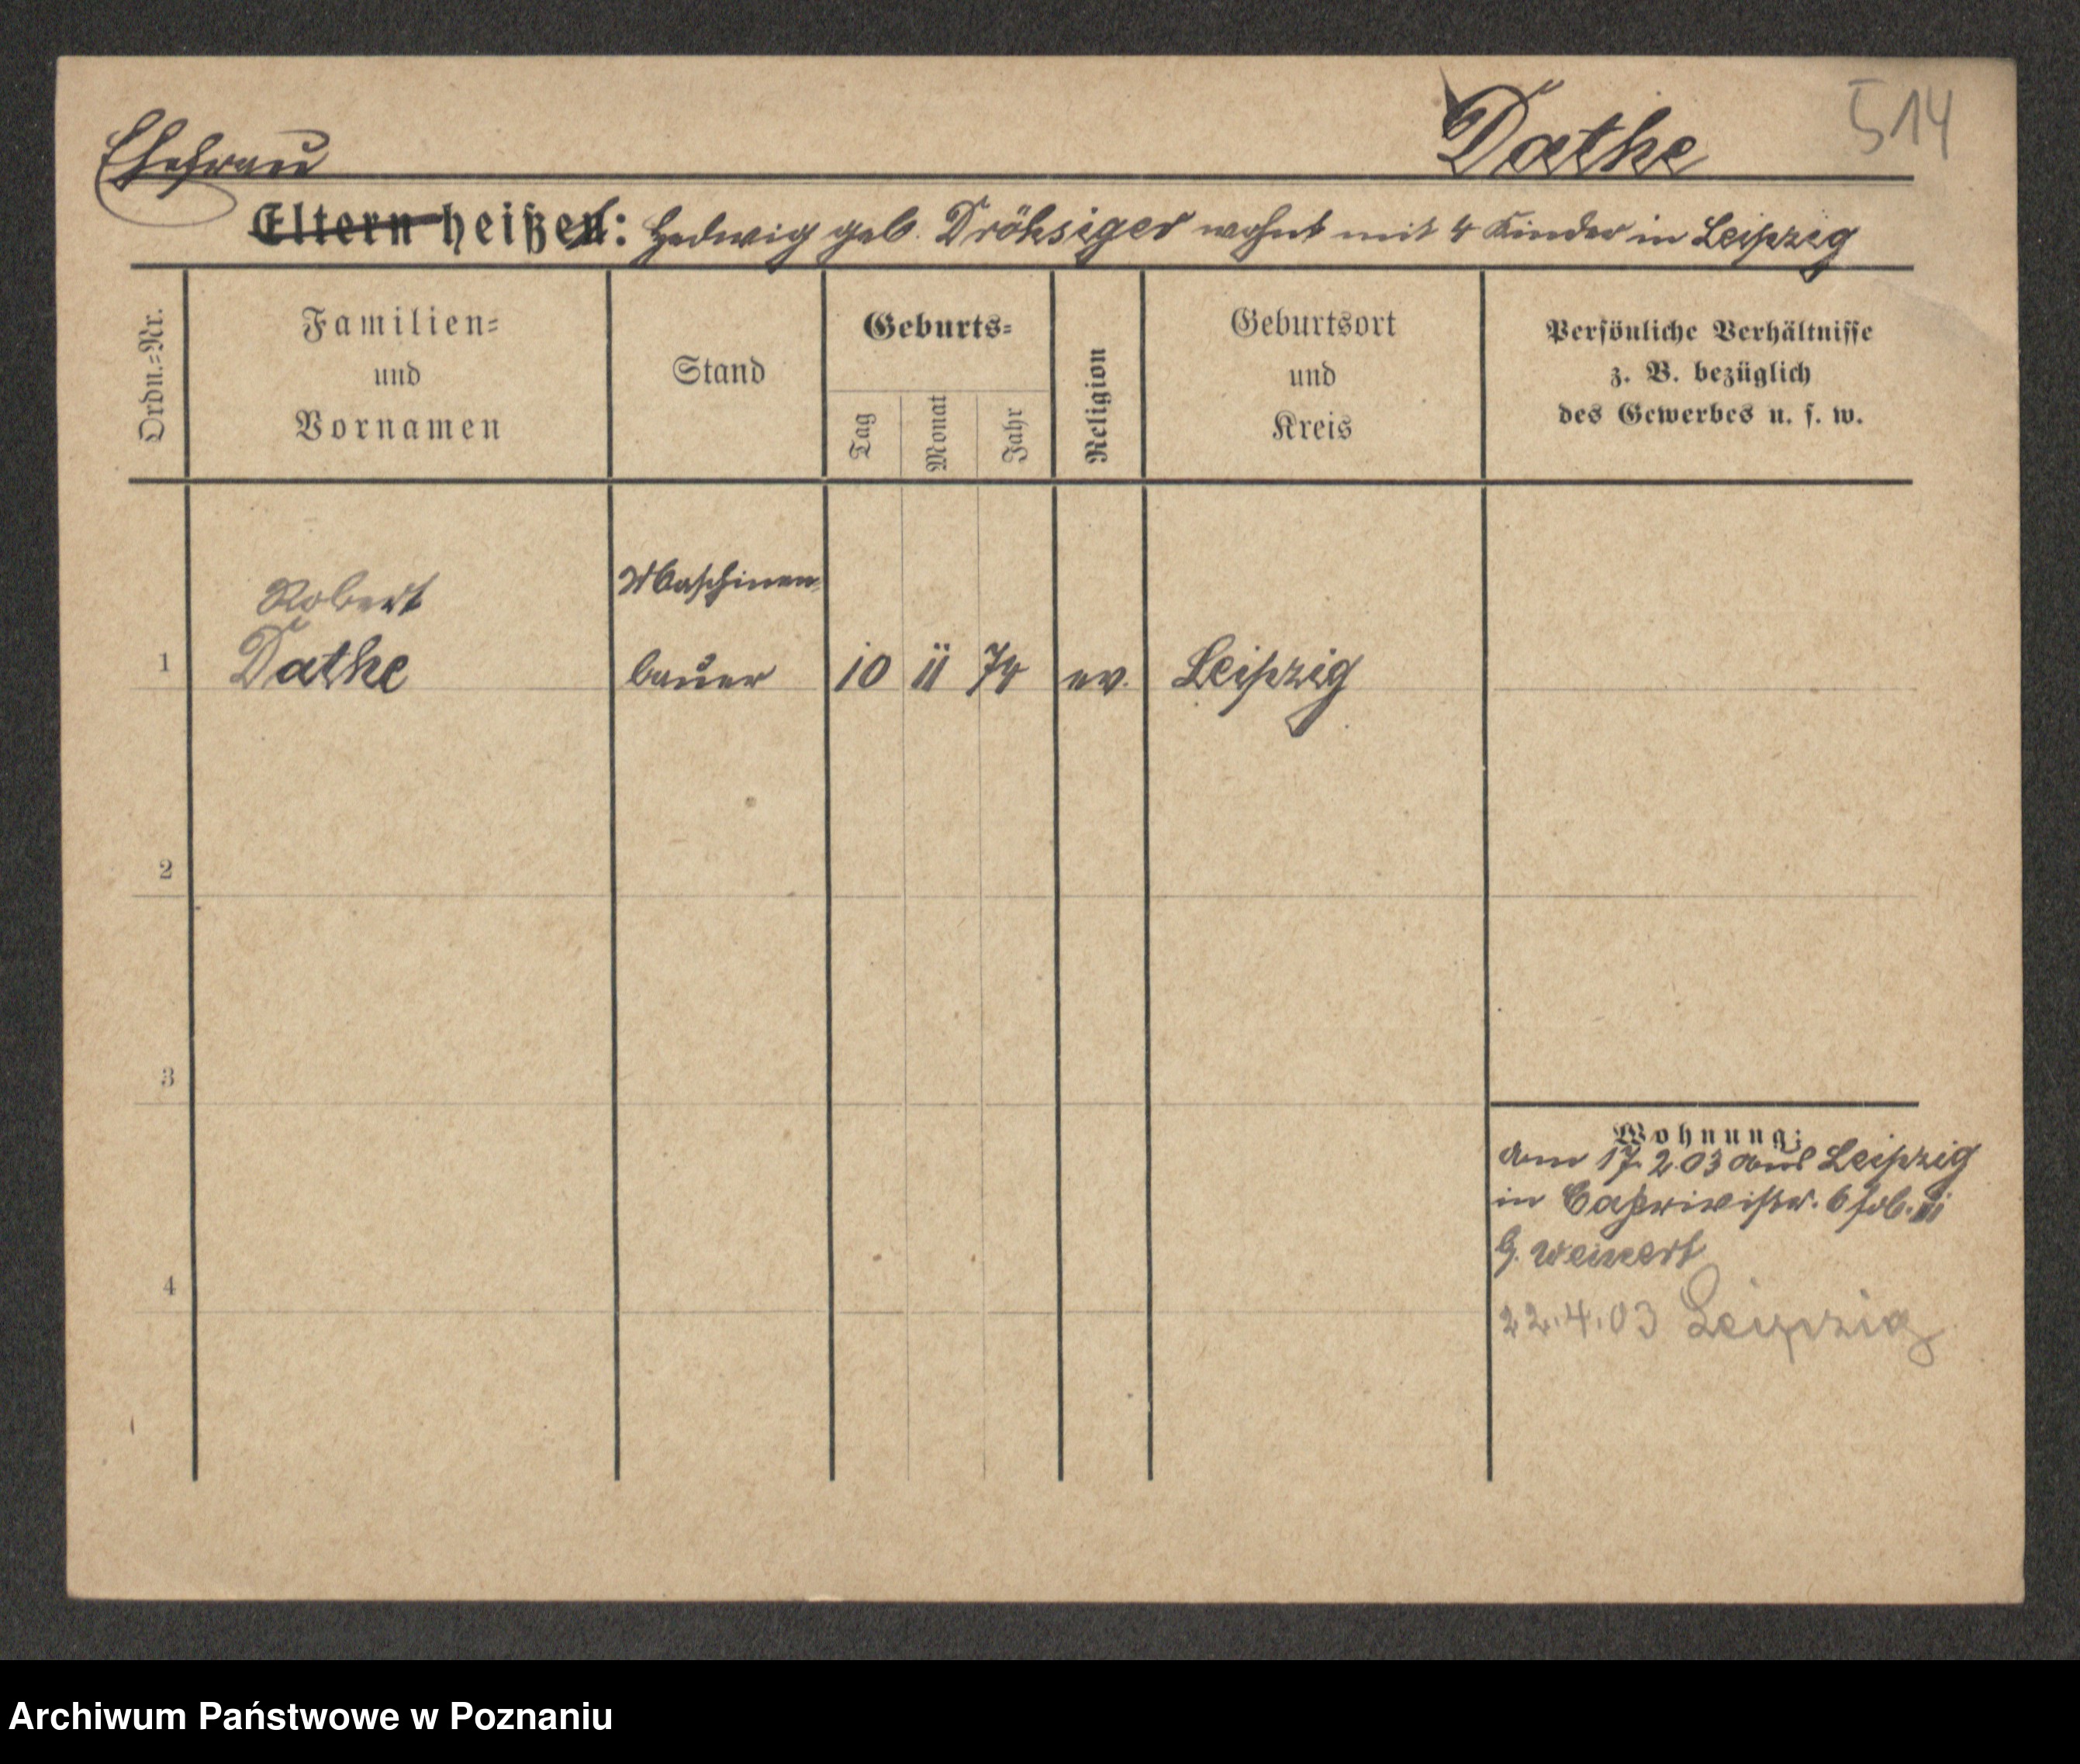 Dathe 514
Ehefrau
Eltern heißen: Hedwig geb. Dröhsiger wohnt mit 4 Kinder in Leipzig
Ordn.=Nr.
Familien=
und
Vornamen
Stand
Geburts=
Tag
Monat
Jahr
Religion
Geburtsort
und
Kreis
Persönliche Verhältnisse
z. B. bezüglich
des Gewerbes u. s. w.
Robert Maschinen=
1 Dathe bauer 10 11 74 ev. Leipzig
2
3
4
Wohnung:
am 17.2.03 aus Leipzig
in Caprivistr. 6 III
b.
22.4.03 Leipzig
Archiwum Państwowe w Poznaniu